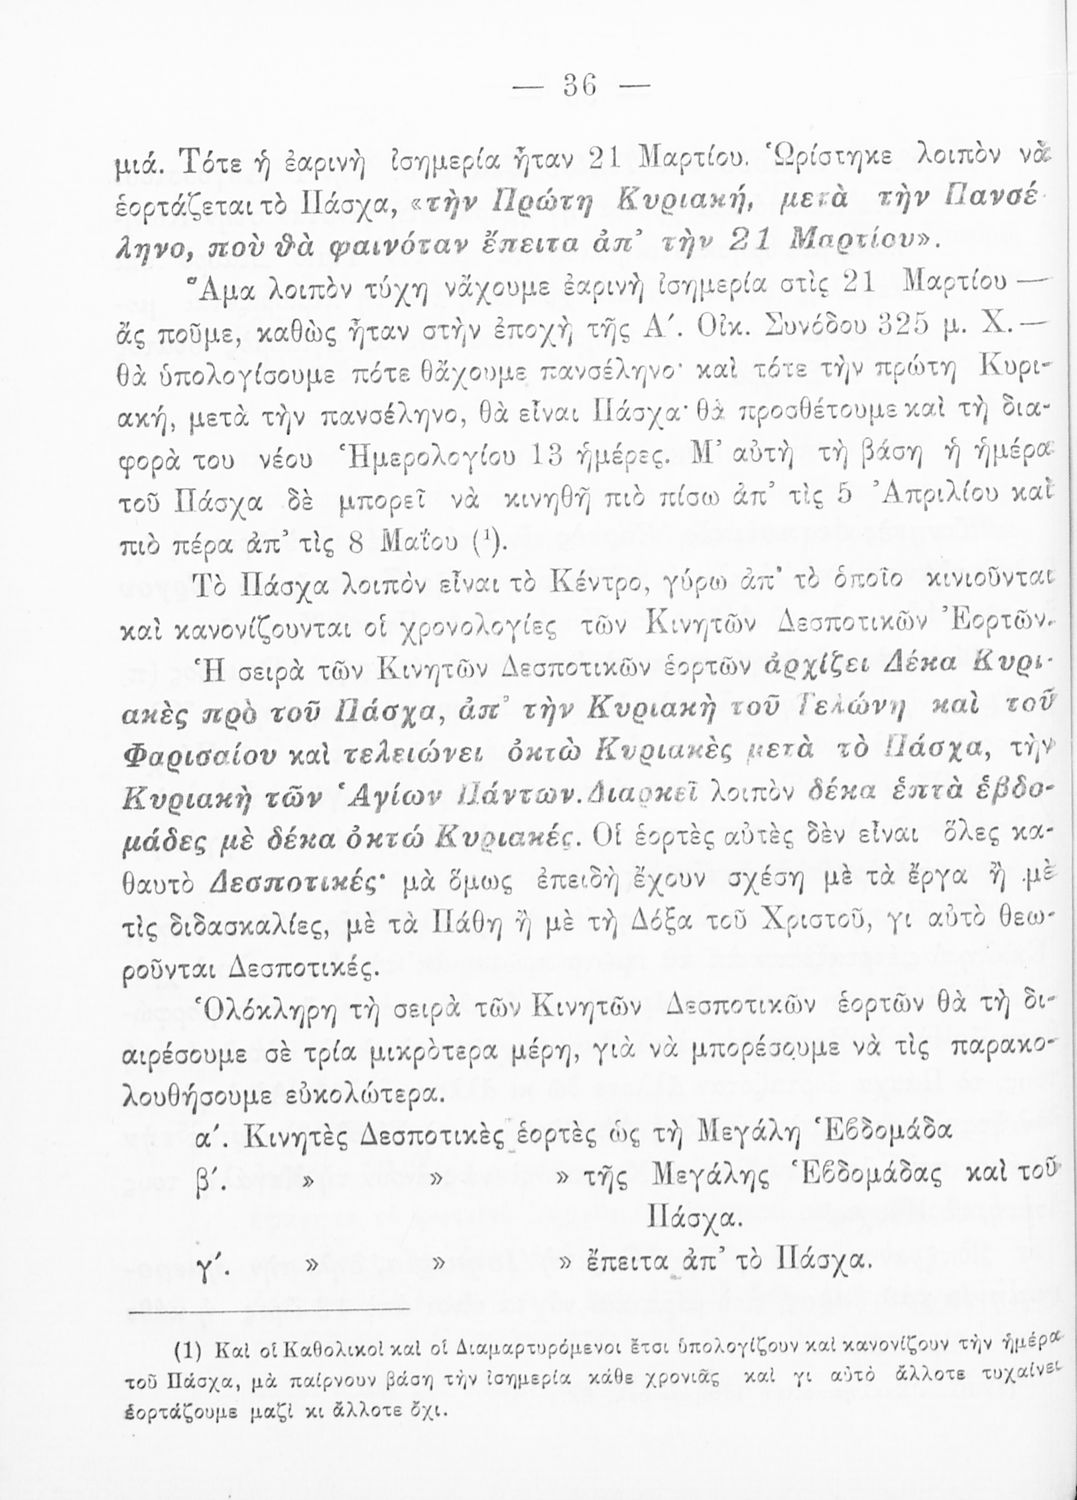 — 36 —
μιά. Τότε ἡ ἐαρινὴ ἰσημερία ἦταν 21 Μαρτίου. Ὡρίστηκε λοιπὸν νὰ
ἑορτάζεται τὸ Πάσχα, «τὴν Πρώτη Κυριακή, μετὰ τὴν Πανσέ-
ληνο, ποὺ θὰ φαινόταν ἔπειτα ἀπ’ τὴν 21 Μαρτίου».
Ἅμα λοιπὸν τύχῃ νἄχουμε ἐαρινὴ ἰσημερία στὶς 21 Μαρτίου —
ἄς ποῦμε, καθὼς ἦταν στὴν ἐποχὴ τῆς Α′. Οἰκ. Συνόδου 325 μ. Χ.—
θὰ ὑπολογίσουμε πότε θἄχουμε πανσέληνο· καὶ τότε τὴν πρώτη Κυρι-
ακή, μετὰ τὴν πανσέληνο, θὰ εἶναι Πάσχα· θὰ προσθέτουμε καὶ τὴ δια-
φορὰ του νέου Ἡμερολογίου 13 ἡμέρες. Μ’ αὐτὴ τὴ βάση ἡ ἡμέρα
τοῦ Πάσχα δὲ μπορεῖ νὰ κινηθῇ πιὸ πίσω ἀπ’ τὶς 5 Ἀπριλίου καὶ
πιὸ πέρα ἀπ’ τὶς 8 Μαΐου (¹).
Τὸ Πάσχα λοιπὸν εἶναι τὸ Κέντρο, γύρω ἀπ’ τὸ ὁποῖο κινιοῦνται
καὶ κανονίζουνται οἱ χρονολογίες τῶν Κινητῶν Δεσποτικῶν Ἑορτῶν.
Ἡ σειρὰ τῶν Κινητῶν Δεσποτικῶν ἑορτῶν ἀρχίζει Δέκα Κυρι-
ακὲς πρὸ τοῦ Πάσχα, ἀπ’ τὴν Κυριακὴ τοῦ Τελώνη καὶ τοῦ
Φαρισαίου καὶ τελειώνει ὀκτὼ Κυριακὲς μετὰ τὸ Πάσχα, τὴν
Κυριακὴ τῶν Ἁγίων Πάντων. Διαρκεῖ λοιπὸν δέκα ἑπτὰ ἑβδο-
μάδες μὲ δέκα ὀκτώ Κυριακές. Οἱ ἑορτὲς αὐτὲς δὲν εἶναι ὅλες κα-
θαυτὸ Δεσποτικές· μὰ ὅμως ἐπειδὴ ἔχουν σχέση μὲ τὰ ἔργα ἢ μὲ
τὶς διδασκαλίες, μὲ τὰ Πάθη ἢ μὲ τὴ Δόξα τοῦ Χριστοῦ, γι αὐτὸ θεω-
ροῦνται Δεσποτικές.
Ὁλόκληρη τὴ σειρὰ τῶν Κινητῶν Δεσποτικῶν ἑορτῶν θὰ τὴ δι-
αιρέσουμε σὲ τρία μικρὸτερα μέρη, γιὰ νὰ μπορέσουμε νὰ τὶς παρακο-
λουθήσουμε εὐκολώτερα.
α′. Κινητὲς Δεσποτικὲς ἑορτὲς ὡς τὴ Μεγάλη Ἑβδομάδα
β′. » » » τῆς Μεγάλης Ἑβδομάδας καὶ τοῦ
Πάσχα.
γ′. » » » ἔπειτα ἀπ’ τὸ Πάσχα.
(1) Καὶ οἱ Καθολικοὶ καὶ οἱ Διαμαρτυρόμενοι ἔτσι ὑπολογίζουν καὶ κανονίζουν τὴν ἡμέρα
τοῦ Πάσχα, μὰ παίρνουν βάση τὴν ἰσημερία κάθε χρονιᾶς καὶ γι αὐτὸ ἄλλοτε τυχαίνει
ἑορτάζουμε μαζὶ κι ἄλλοτε ὄχι.